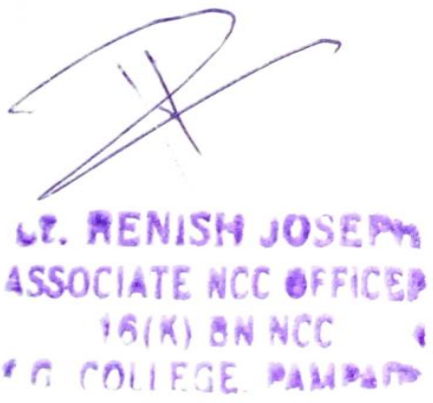 Lt. RENISH JOSEPH
ASSOCIATE NCC OFFICER
16(K) BN NCC
COLLEGE, PAMPADY